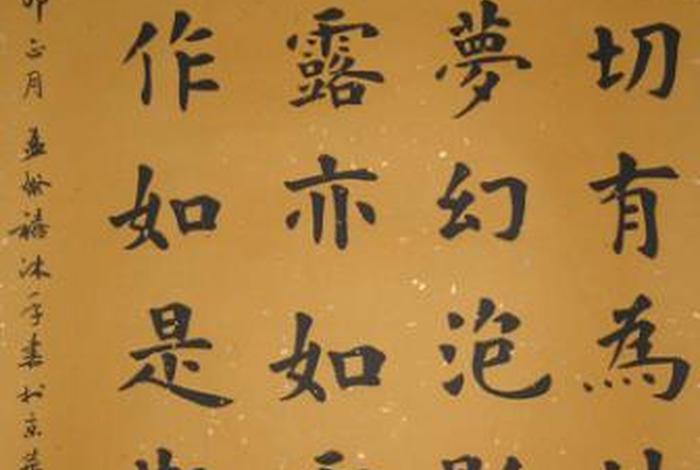 切有為
夢幻泡影
露亦如
作如是
正月孟 沐手書於京華